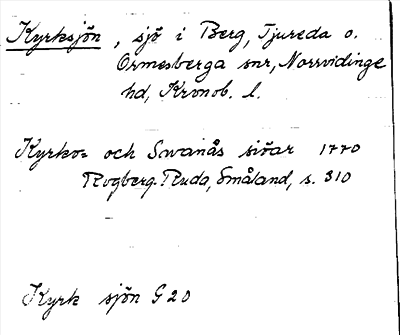 Kyrksjön, sjö i Berg, Tjureda o.
Ormesberga snr, Norrvidinge
hd, Kronob. l.
Kyrko= och Swanås siöar 1770
Rogberg-Ruda, Småland, s. 310
Kyrk sjön G20